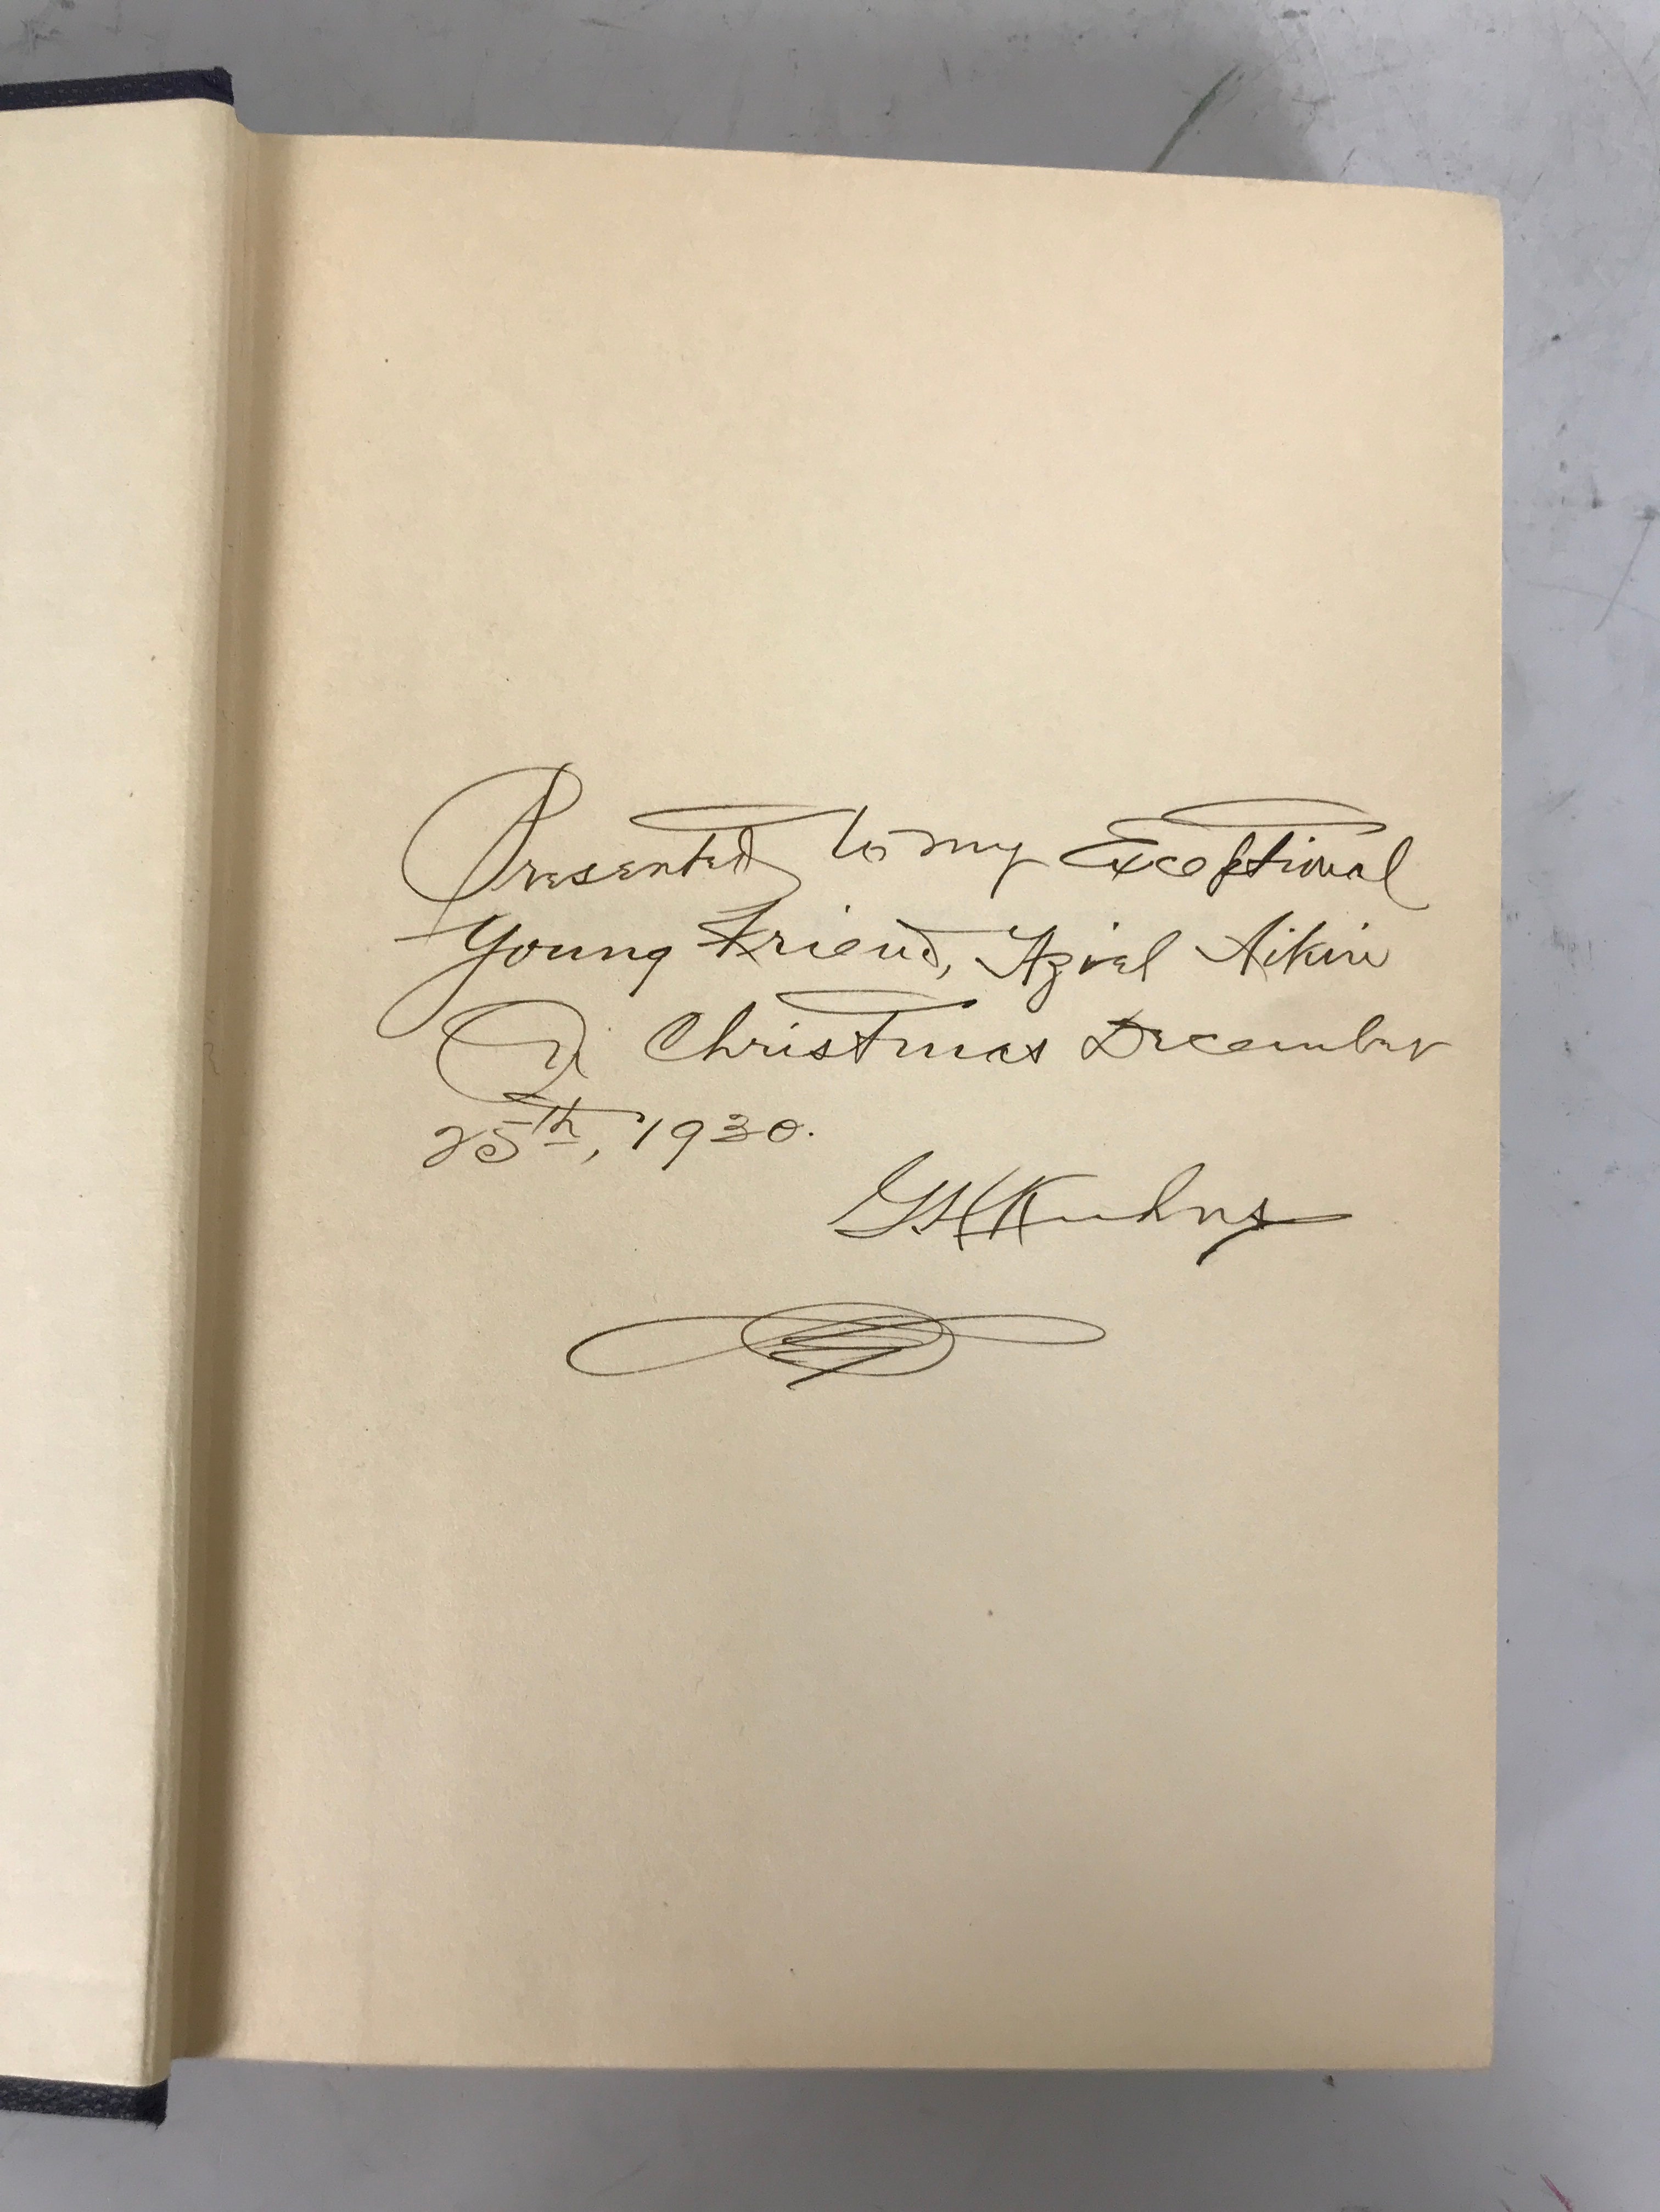 Presented to my Exceptional
Young Friend, Azriel Aikin
On Christmas December
25th, 1930.
Kuhns